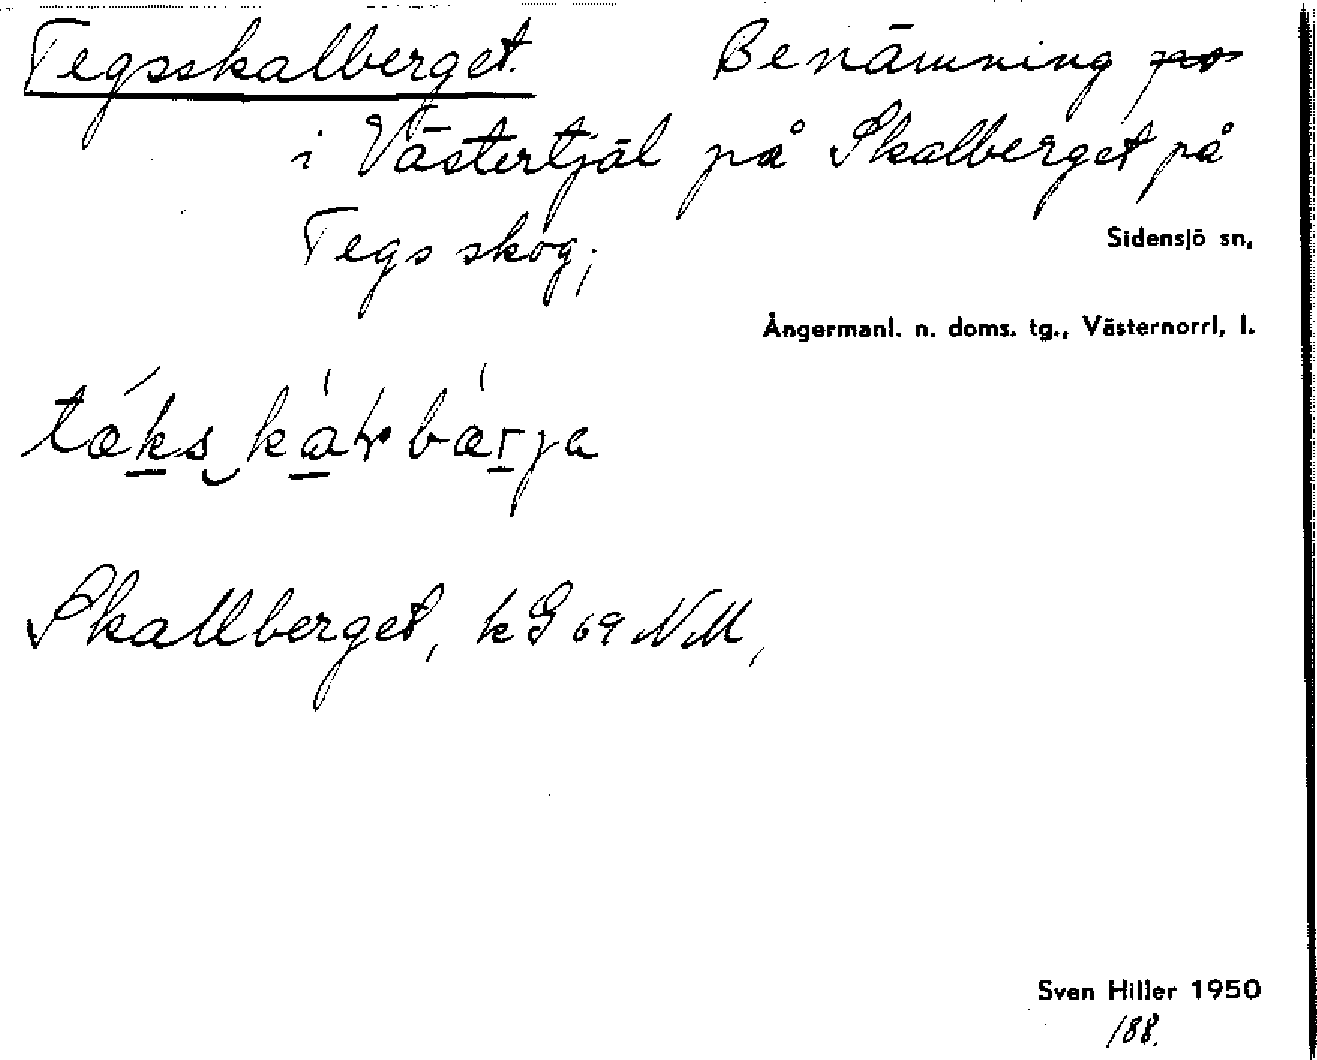 Tegsskalberget. Benämning ~~på~~
i Västertjäl på Skalberget på
Tegs skog;
Sidensjö sn,
Ångermanl. n. doms. tg., Västernorrl, l.
Skallberget, kG 69 NM,
Sven Hiller 1950
188.